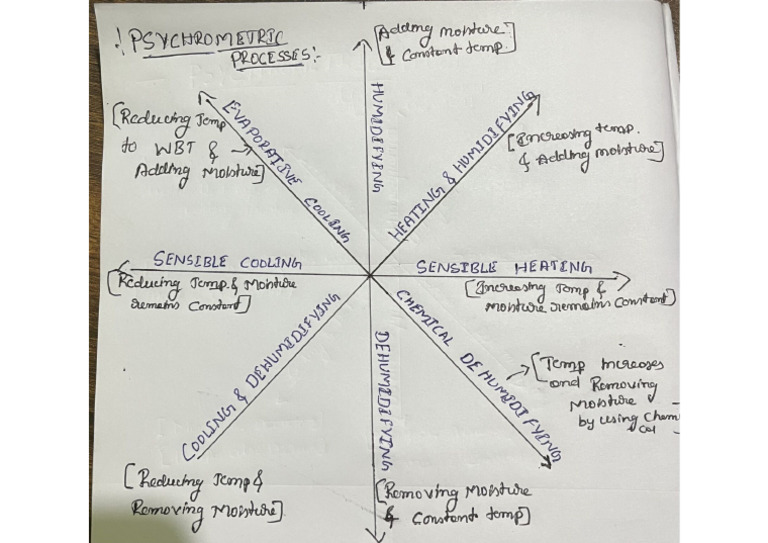 ! PSYCHROMETRIC
PROCESSES:-
[Adding moisture
& Constant temp.]
HUMIDIFYING
[Reducing Temp
to WBT &
Adding Moisture]
EVAPORATIVE COOLING
HEATING & HUMIDIFYING
[Increasing temp.
& Adding moisture]
SENSIBLE COOLING
[Reducing Temp. & Moisture
remains Constant]
SENSIBLE HEATING
[Increasing Temp &
Moisture remains Constant]
COOLING & DEHUMIDIFYING
[Reducing Temp &
Removing Moisture]
DEHUMIDIFYING
[Removing Moisture
& Constant temp]
CHEMICAL DEHUMIDIFYING
[Temp Increases
and Removing
Moisture
by using Chemi
cal